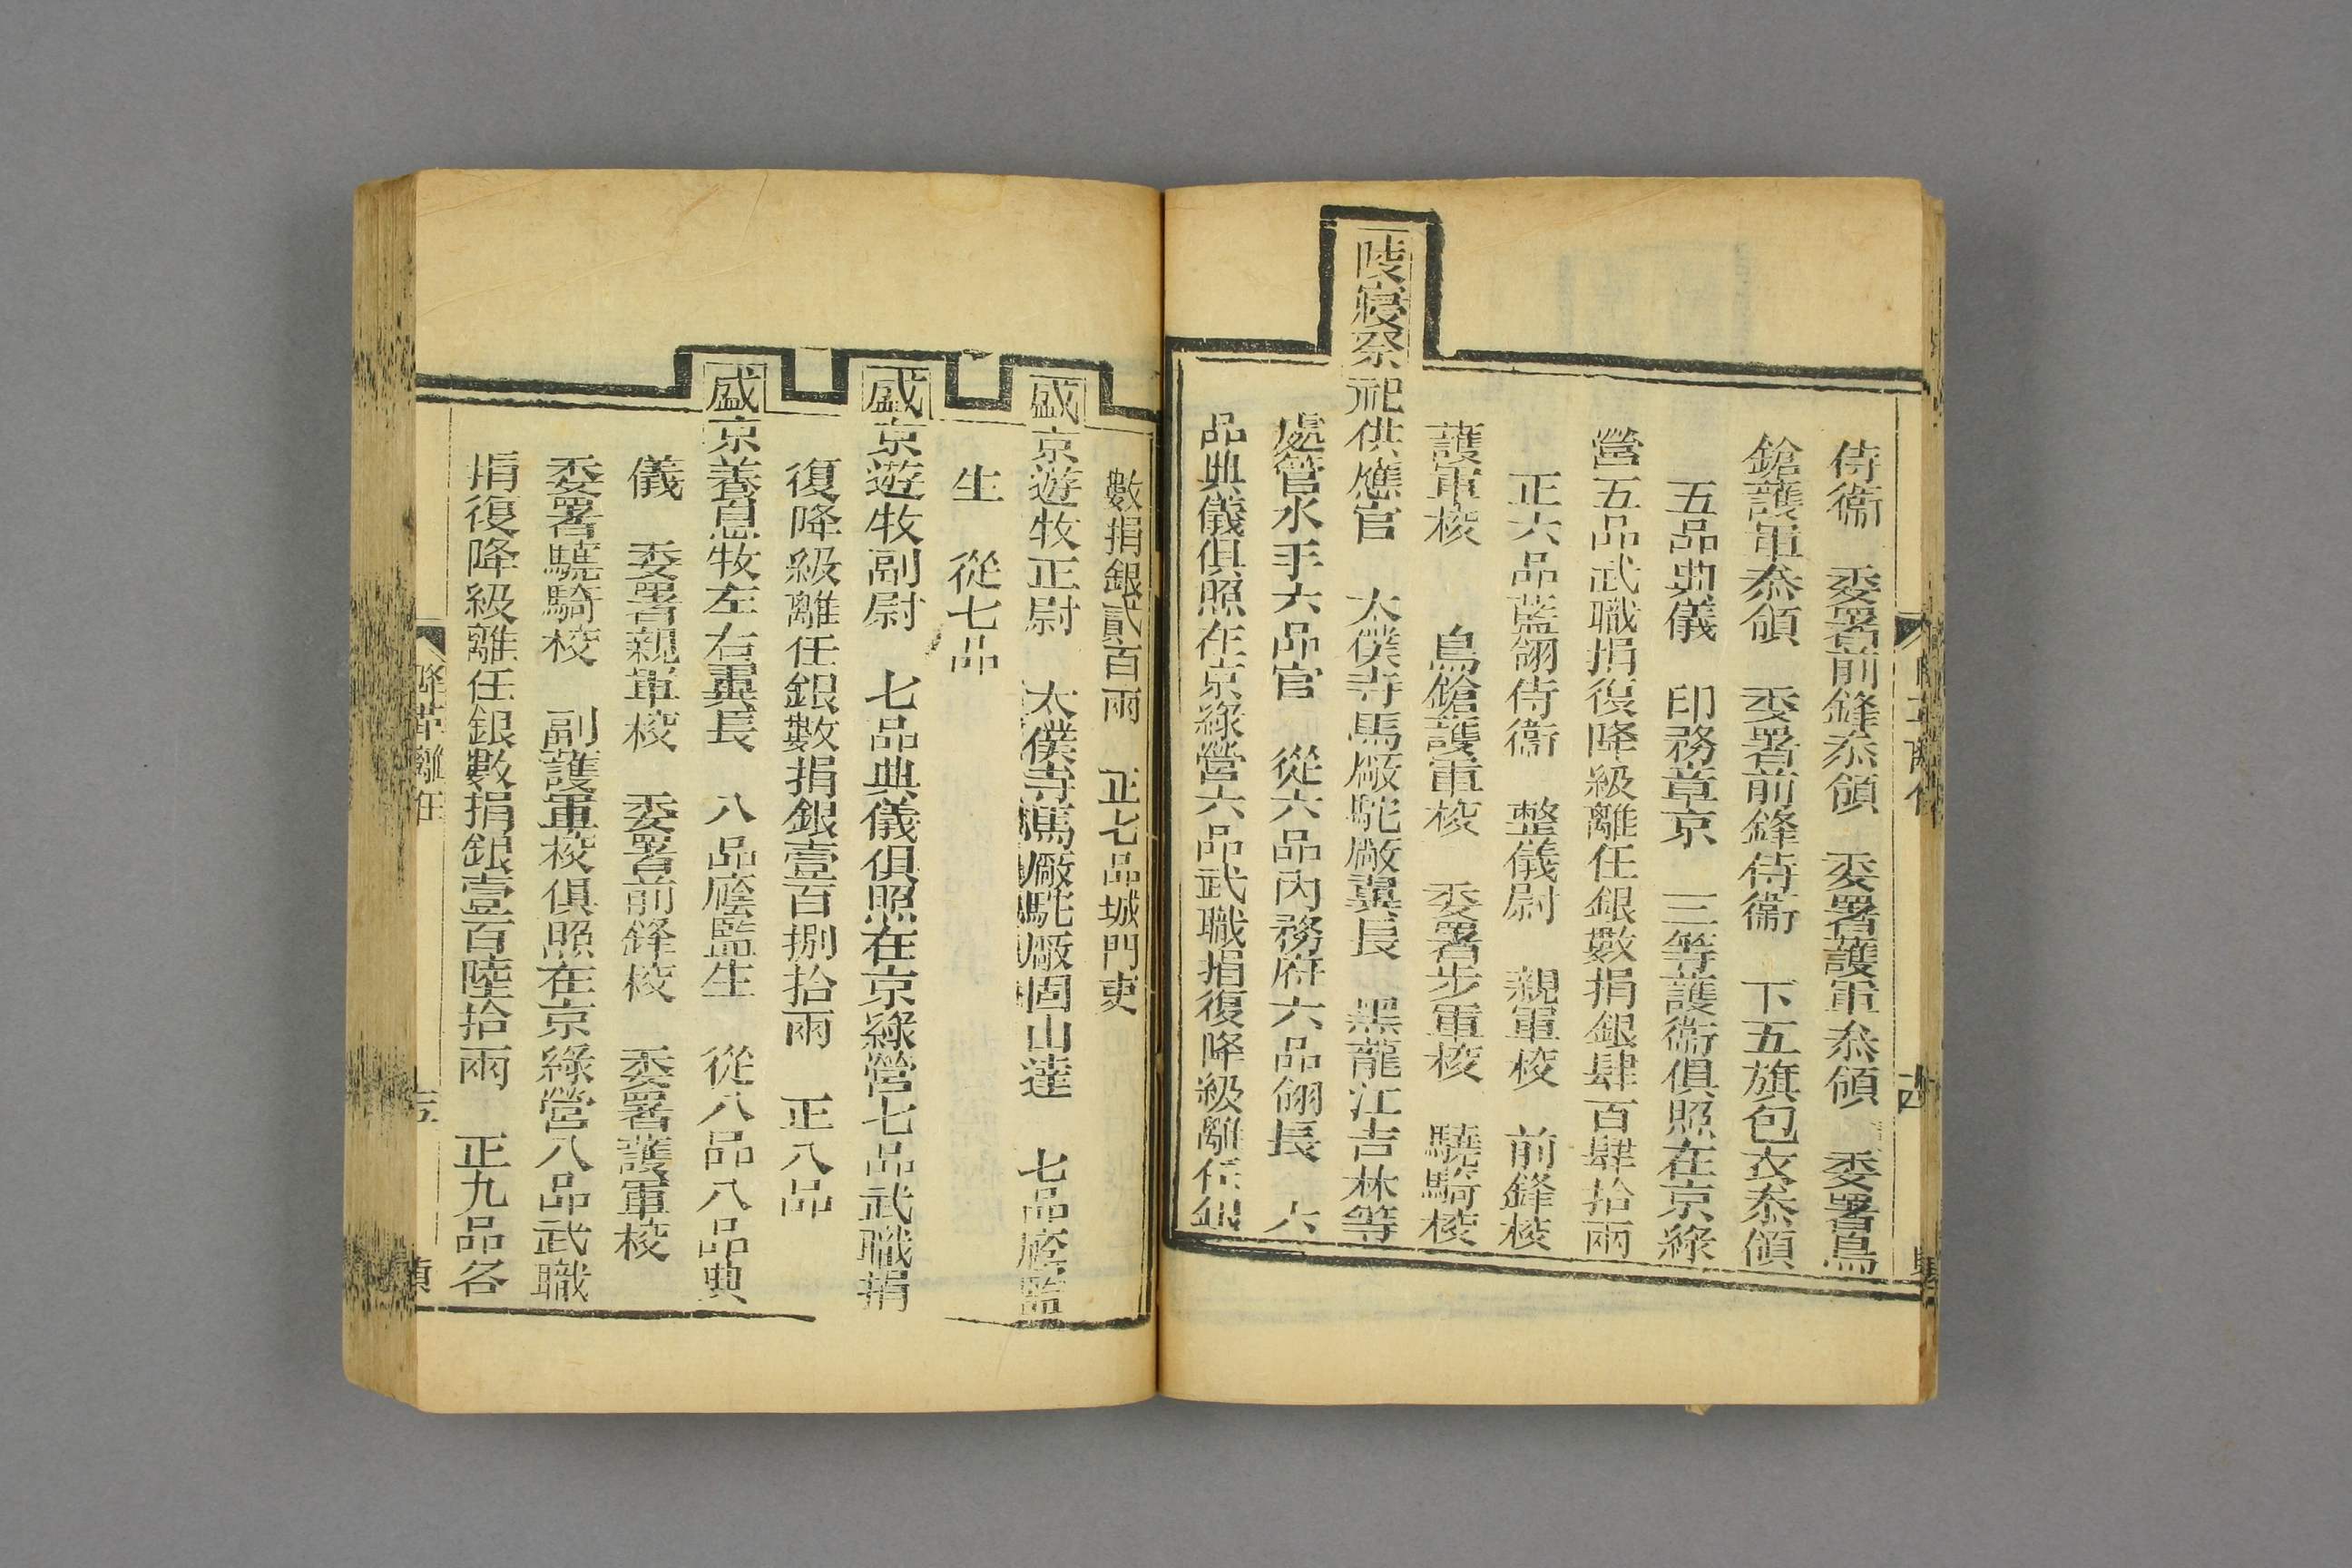 侍衞　委署前鋒叅領　委署護軍叅領　委署鳥
鎗護軍叅領　委署前鋒侍衞　下五旗包衣叅領
五品典儀　印務章京　三等護衞俱照在京綠
營五品武職捐復降級離任銀數捐銀肆百肆拾兩
正六品藍翎侍衞　整儀尉　親軍校　前鋒校
護軍校　鳥鎗護軍校　委署步軍校　驍騎校
陵寢祭祀供應官　太僕寺馬廠駝廠翼長　黑龍江吉林等
處管水手六品官　從六品內務府六品翎長　六
品典儀俱照在京綠營六品武職捐復降級離任銀
數捐銀貳百兩　正七品城門吏
盛京遊牧正尉　太僕寺馬廠駝廠固山達　七品廕監
生　從七品
盛京遊牧副尉　七品典儀俱照在京綠營七品武職捐
復降級離任銀數捐銀壹百捌拾兩　正八品
盛京養息牧左右翼長　八品廕監生　從八品八品典
儀　委署親軍校　委署前鋒校　委署護軍校
委署驍騎校　副護軍校俱照在京綠營八品武職
捐復降級離任銀數捐銀壹百陸拾兩　正九品各
降革離任